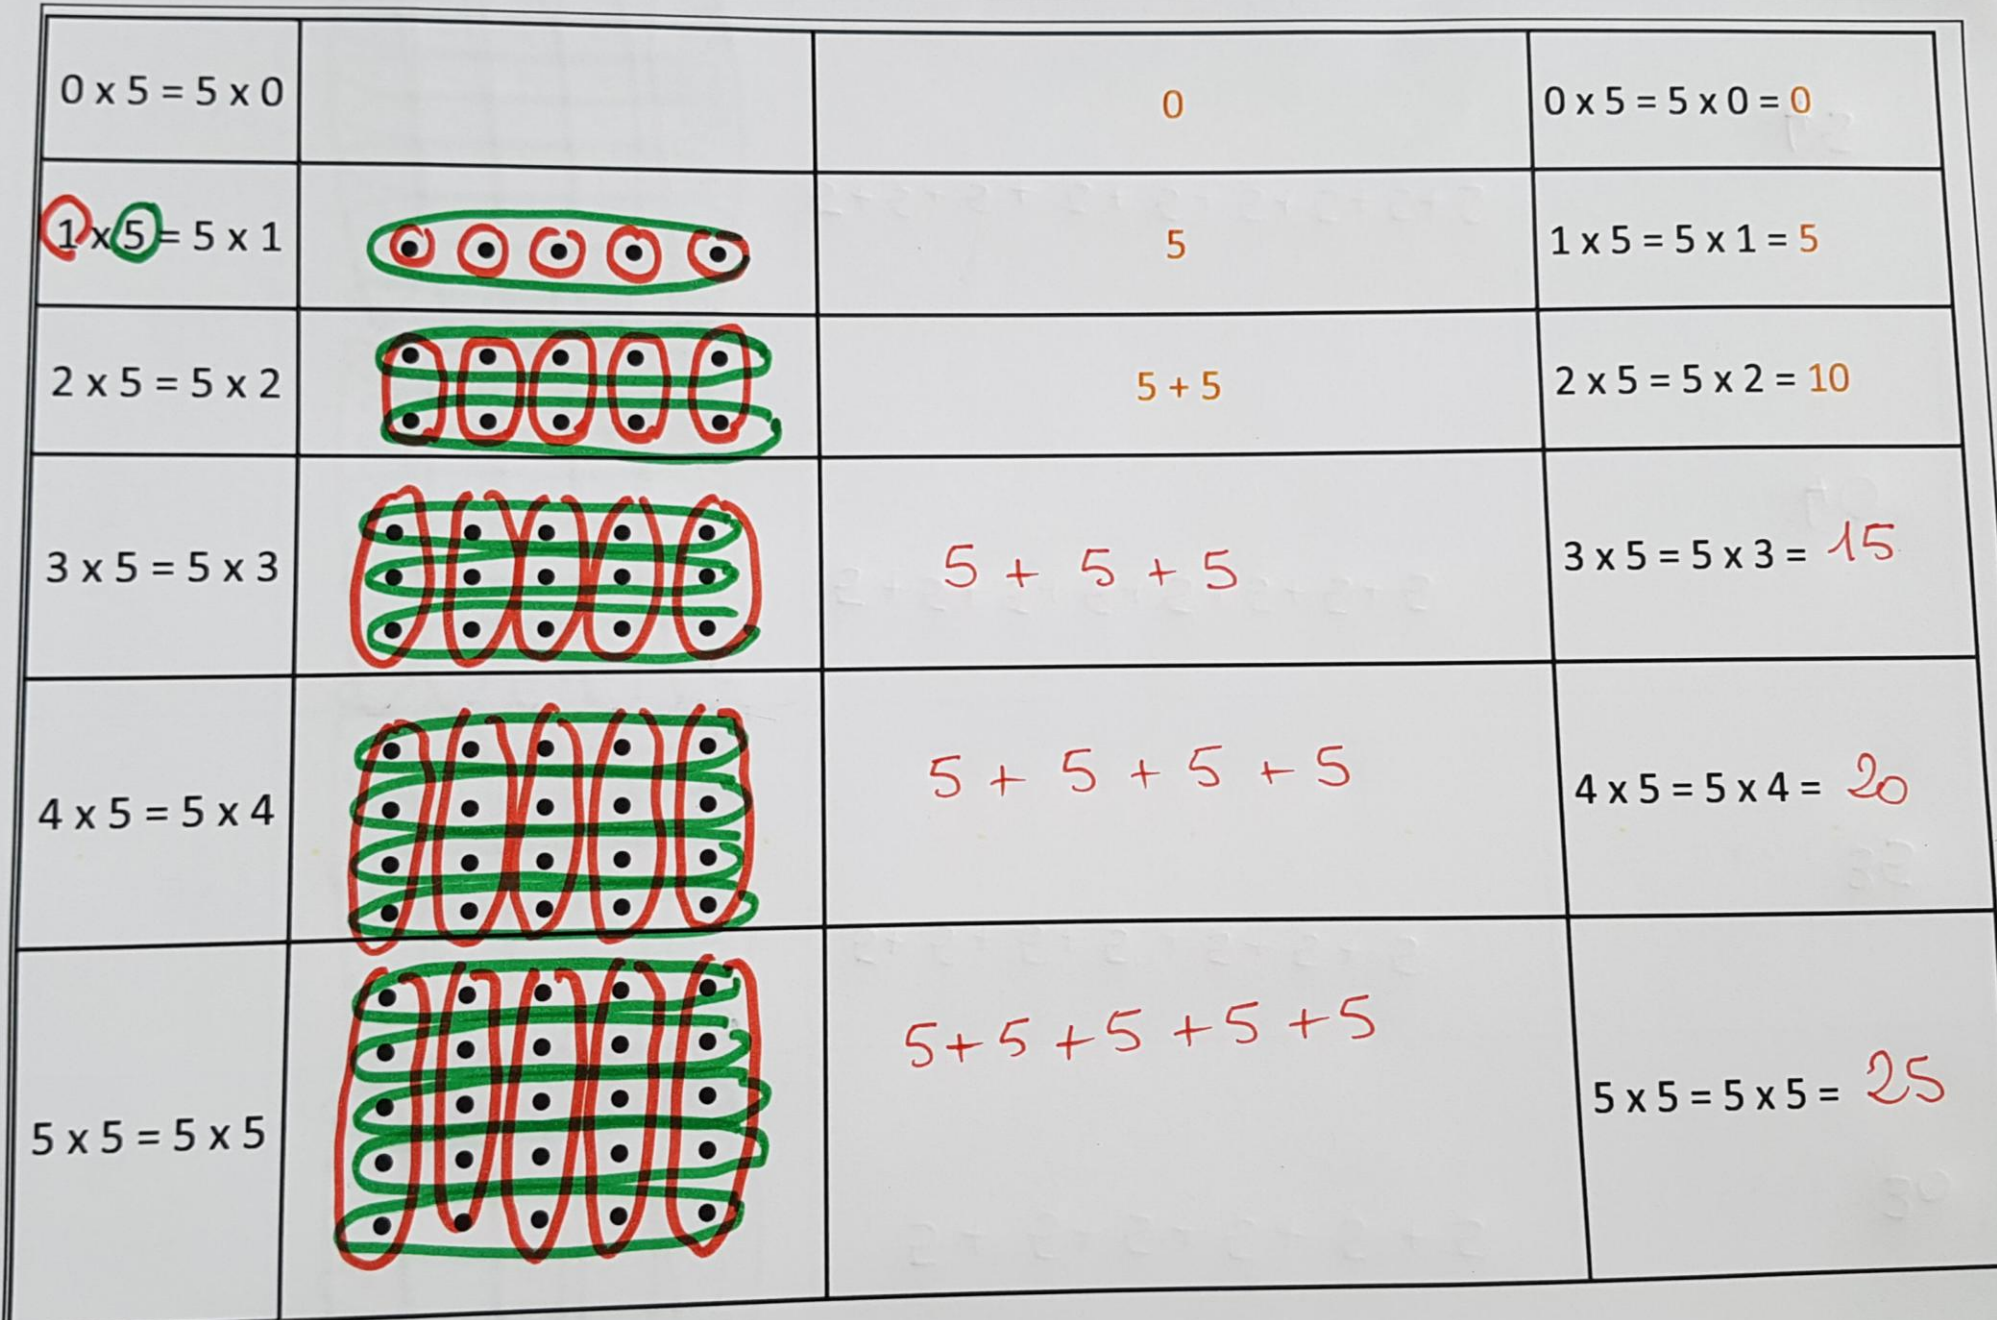 0 x 5 = 5 x 0
0
0 x 5 = 5 x 0 = 0
1 x 5 = 5 x 1
5
1 x 5 = 5 x 1 = 5
2 x 5 = 5 x 2
5 + 5
2 x 5 = 5 x 2 = 10
3 x 5 = 5 x 3
5 + 5 + 5
3 x 5 = 5 x 3 = 15
4 x 5 = 5 x 4
5 + 5 + 5 + 5
4 x 5 = 5 x 4 = 20
5 x 5 = 5 x 5
5 + 5 + 5 + 5 + 5
5 x 5 = 5 x 5 = 25